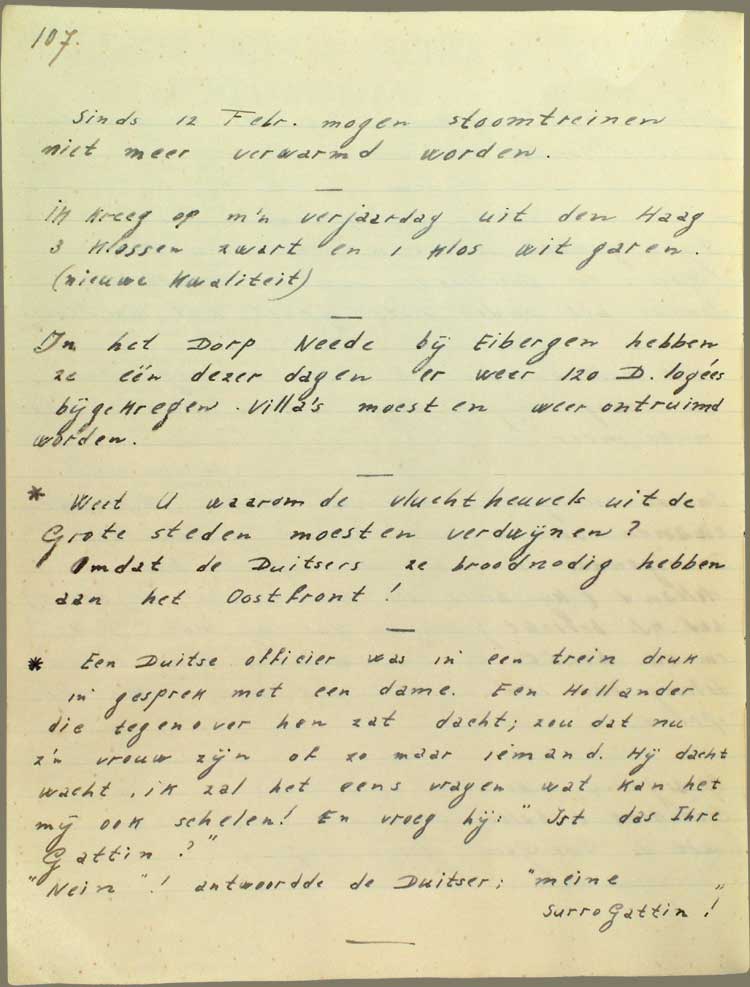 107.
Sinds 12 Febr. mogen stoomtreinen
niet meer verwarmd worden.
Ik kreeg op m'n verjaardag uit den Haag
3 klossen zwart en 1 klos wit garen.
(nieuwe kwaliteit)
In het Dorp Neede bij Eibergen hebben
ze één dezer dagen er weer 120 D. logées
bijgekregen. Villa's moesten weer ontruimd
worden.
* Weet U waarom de vluchtheuvels uit de
Grote steden moesten verdwijnen?
Omdat de Duitsers ze broodnodig hebben
aan het Oostfront!
* Een Duitse officier was in een trein druk
in gesprek met een dame. Een Hollander
die tegenover hen zat dacht; zou dat nu
z'n vrouw zijn of zo maar iemand. Hij dacht
wacht, ik zal het eens vragen wat kan het
mij ook schelen! En vroeg hij: "Ist das Ihre
Gattin?"
"Nein"! antwoordde de Duitser; "meine
SurroGattin!"